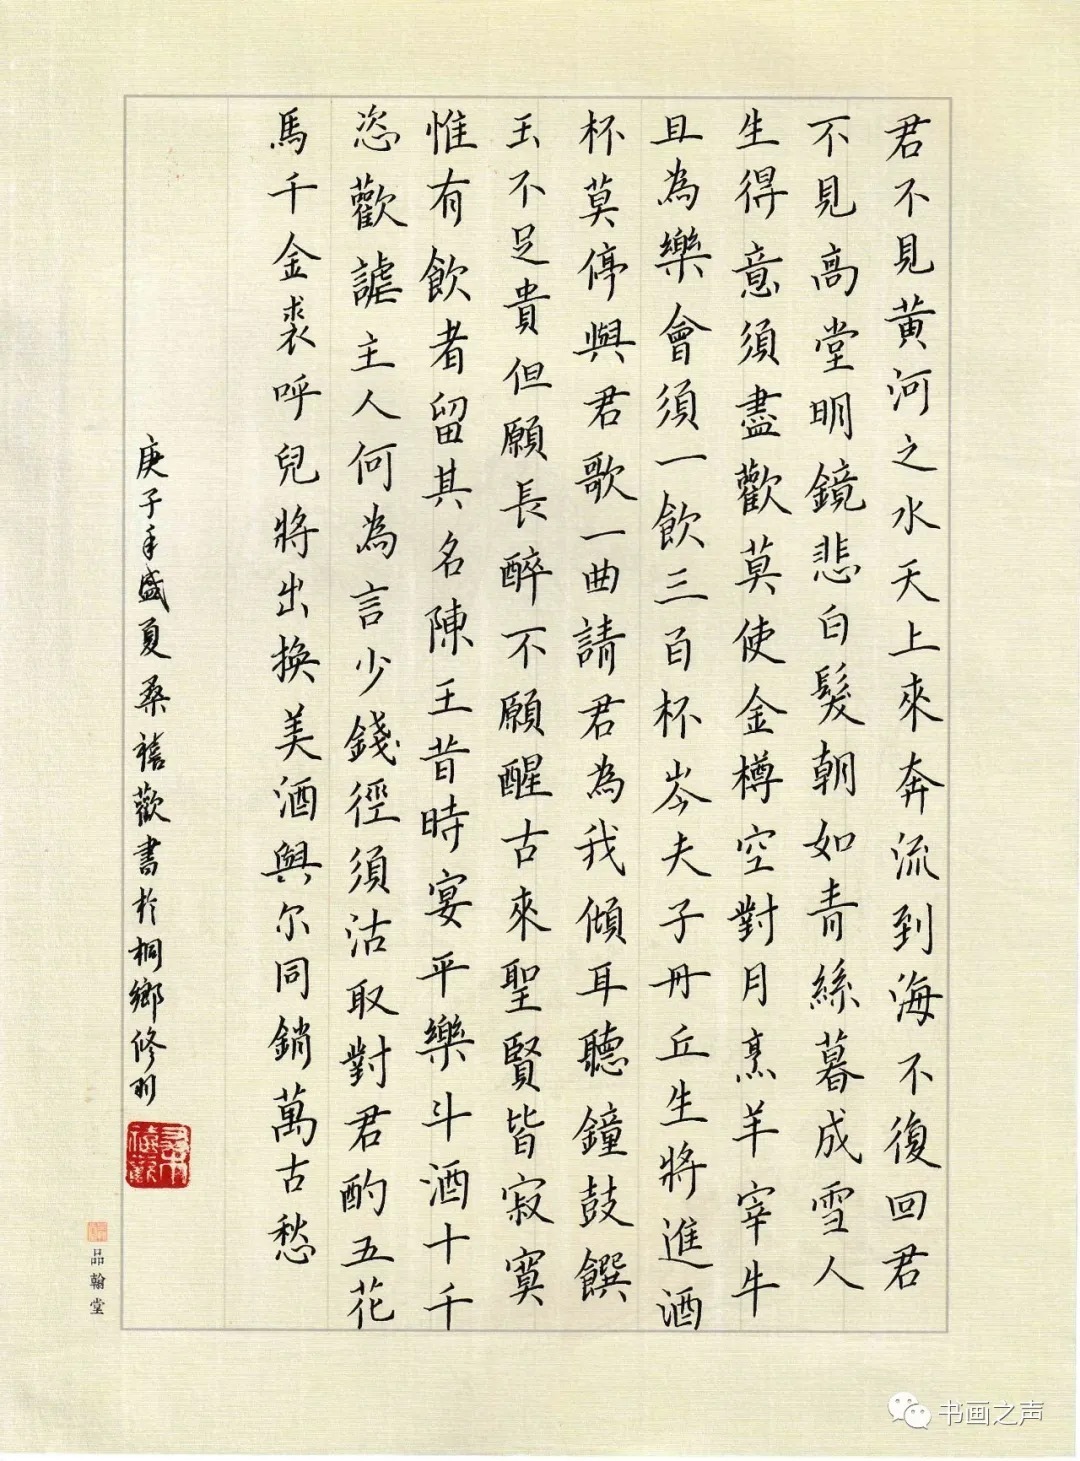 君不見黃河之水天上來奔流到海不復回君
不見高堂明鏡悲白髮朝如青絲暮成雪人
生得意須盡歡莫使金樽空對月烹羊宰牛
且為樂會須一飲三百杯岑夫子丹丘生將進酒
杯莫停與君歌一曲請君為我傾耳聽鐘鼓饌
玉不足貴但願長醉不願醒古來聖賢皆寂寞
惟有飲者留其名陳王昔時宴平樂斗酒十千
恣歡謔主人何為言少錢徑須沽取對君酌五花
馬千金裘呼兒將出換美酒與尔同銷萬古愁
庚子年盛夏桑禧歡書於桐鄉修羽
品翰堂
书画之声